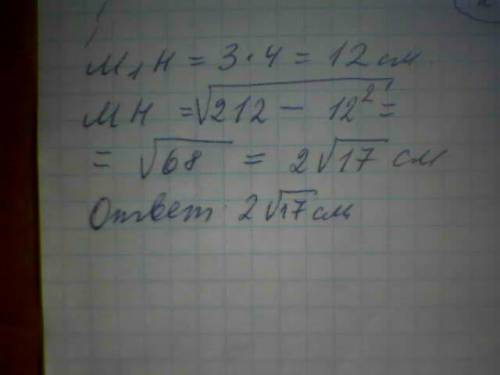 M₁H = 3·4 = 12 см
MH = √212 − 12² =
= √68 = 2√17 см
Ответ 2√17 см